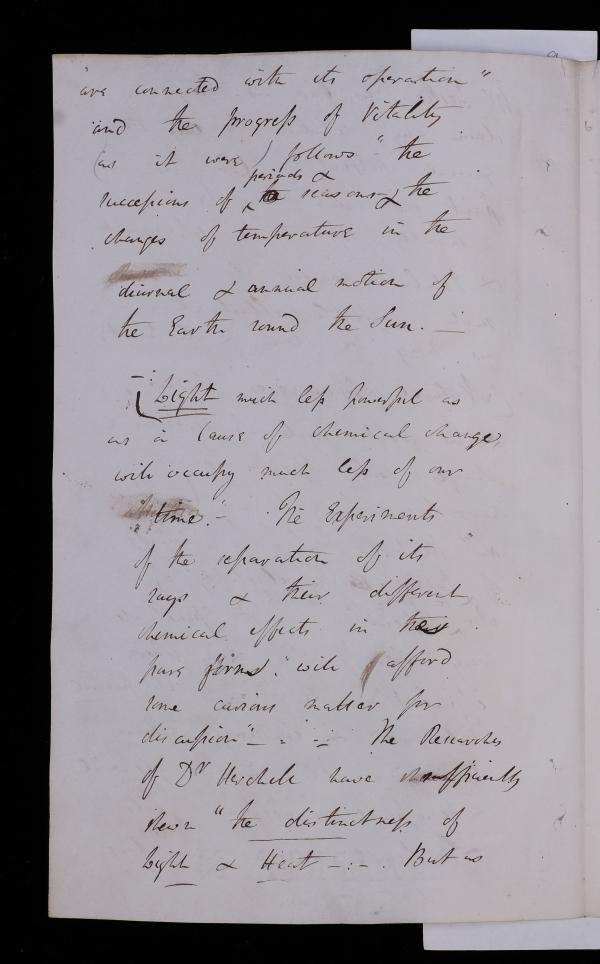 are connected with its operation"
and the progress of Vitality
(as it were) follows "the
periods &
successions of seasons & the
changes of temperature in the
diurnal & annual motion of
the Earth round the Sun. —
Light much less powerful as
as a cause of chemical change,
will occupy much less of our
"time." – The Experiments
of the separation of its
rays & their different
chemical effects in their
pure forms." will afford
some curious matter for
discussion" – The Researches
of Dr Herchell have sufficiently
shewn "the distinctness of
Light & Heat – : – . But as